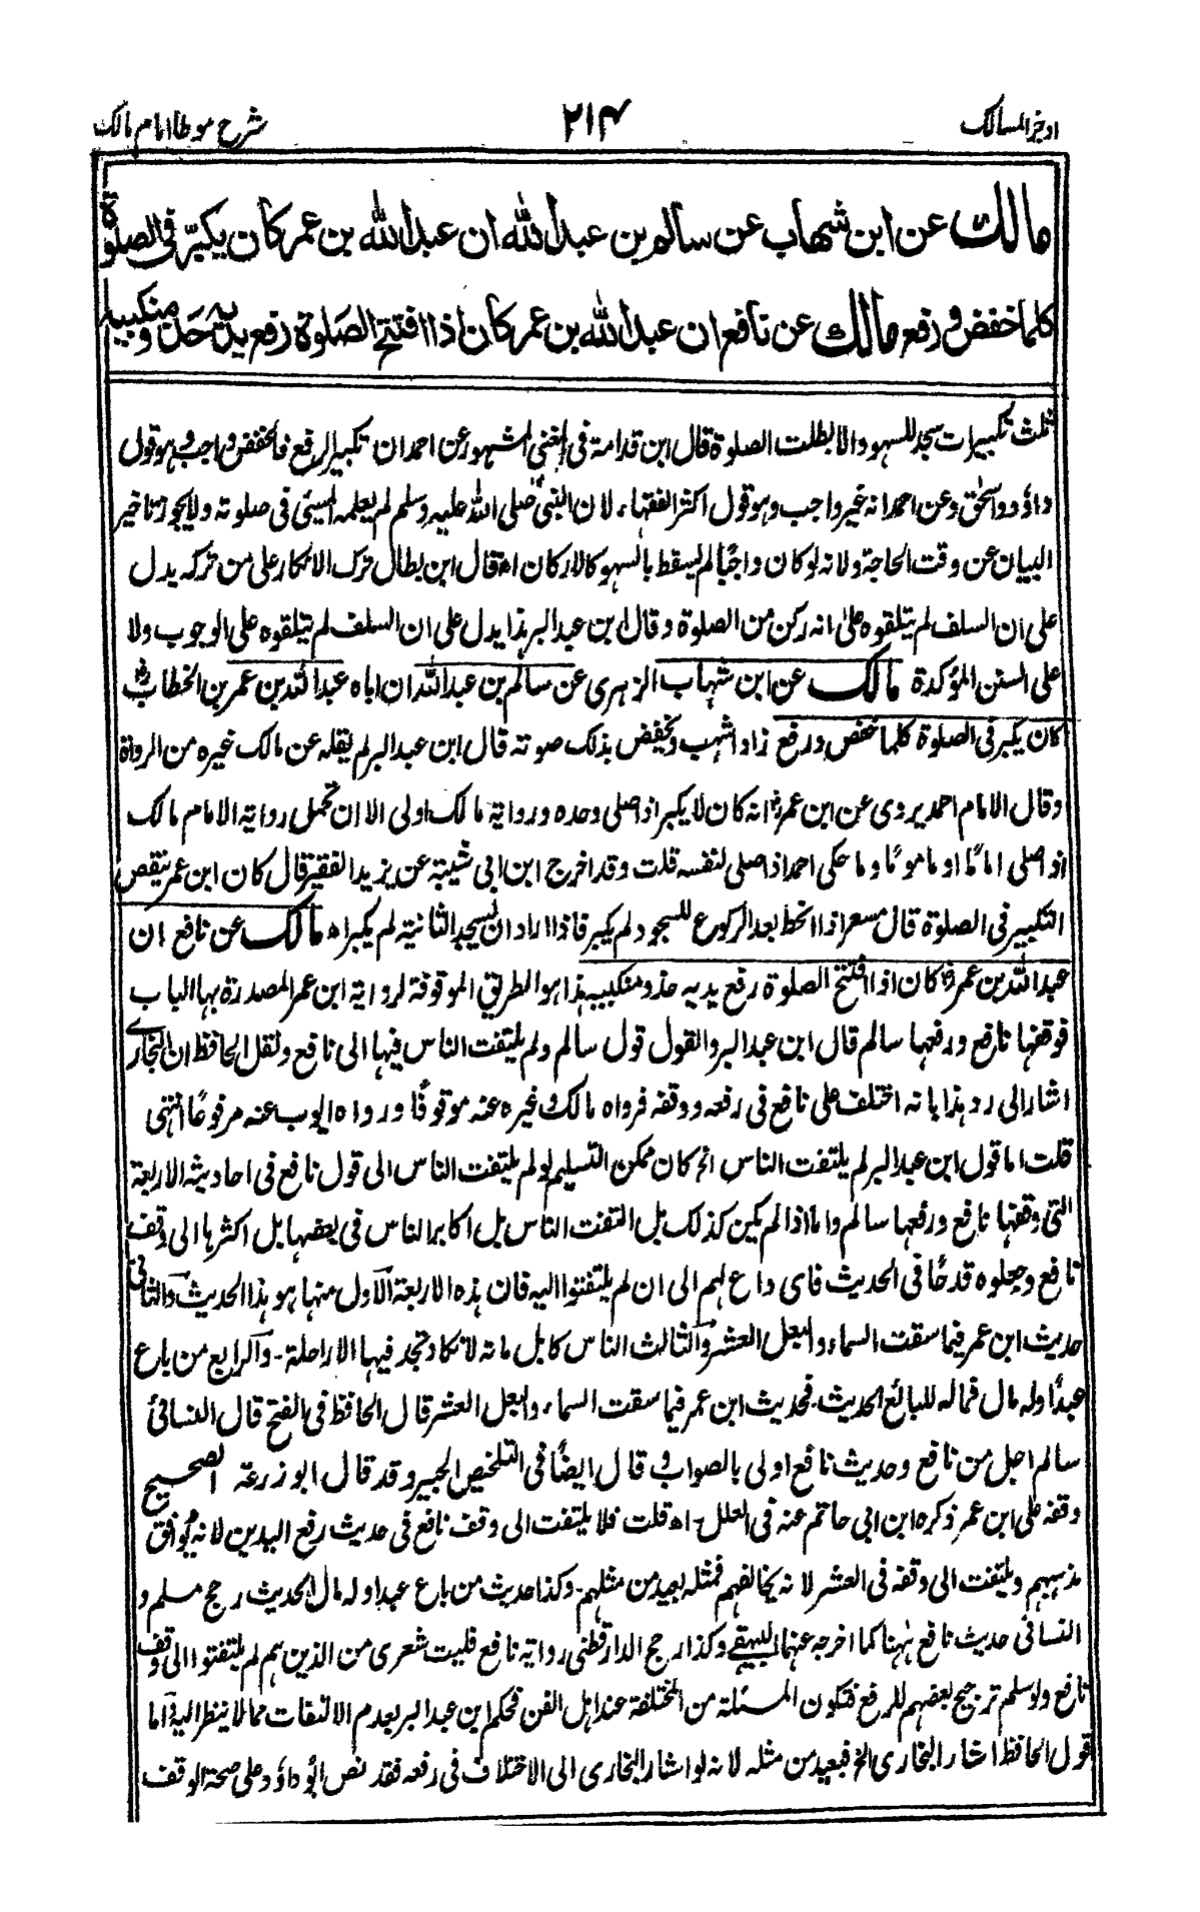 اوجز المسالك ۲۱۴ شرح موطا امام مالك
مالك عن ابن شهاب عن سالم بن عبد الله ان عبد الله بن عمر كان يكبّر فى الصلوة
كلما خفض و رفع مالك عن نافع ان عبد الله بن عمر كان اذا افتتح الصلوة رفع يديه حذو منكبيه
ثلث تكبيرات سجد للسهو والا بطلت الصلوة قال ابن قدامة فى المغنى المشهور عن احمد ان تكبير الرفع والخفض واجب وهو قول
داؤد واسحٰق وعن احمد انه غير واجب وهو قول اكثر الفقهاء، لان النبى صلى الله عليه وسلم لم يعلمه المسيئ فى صلوته ولا يجوز تاخير
البيان عن وقت الحاجة ولانه لو كان واجبًا لم يسقط بالسهو كالاركان اھ قال ابن بطال ترك الانكار على من تركه يدل
على ان السلف لم يتلقوه على انه ركن من الصلوة وقال ابن عبد البر هذا يدل على ان السلف لم يتلقوه على الوجوب ولا
على السنن المؤكدة مالك عن ابن شهاب الزهرى عن سالم بن عبد الله ان اباه عبد الله بن عمر بن الخطاب رض
كان يكبر فى الصلوة كلما خفض ورفع زاد اشهب ويخفض بذلك صوته قال ابن عبد البر لم يقله عن مالك غيره من الرواة
وقال الامام احمد يروى عن ابن عمر رض انه كان لا يكبر اذ صلى وحده ورواية مالك اولى الا ان تحمل رواية الامام مالك
اذ صلى امامًا او مامومًا وما حكى احمد اذ صلى لنفسه قلت وقد اخرج ابن ابى شيبة عن يزيد الفقير قال كان ابن عمر ينقص
التكبير فى الصلوة قال مسعر اذا انحط بعد الركوع للسجود لم يكبر فاذا اراد ان يسجد الثانية لم يكبر اھ مالك عن نافع ان
عبد الله بن عمر رض كان اذا افتتح الصلوة رفع يديه حذو منكبيه هذا هو الطريق الموقوفة لرواية ابن عمر المصدرة بها الباب
فوقفها نافع ورفعها سالم قال ابن عبد البر والقول قول سالم ولم يلتفت الناس فيها الى نافع ونقل الحافظ ان البخارى
اشار الى رد هذا بانه اختلف على نافع فى رفعه ووقفه فرواه مالك وغيره عنه موقوفًا ورواه ايوب عنه مرفوعًا انتهى
قلت اما قول ابن عبد البر لم يلتفت الناس الخ كان ممكن التسليم لو لم يلتفت الناس الى قول نافع فى احاديثه الاربعة
التى وقفها نافع ورفعها سالم واما اذا لم يكن كذلك بل التفت الناس بل اكابر الناس فى بعضها بل اكثرها الى وقف
نافع وجعلوه قدحًا فى الحديث فاى داع لهم الى ان لم يلتفتوا اليه فان هذه الاربعة الاول منها هو هذا الحديث والثانى
حديث ابن عمر فيما سقت السماء والبعل العشر والثالث الناس كابل مائة لا تكاد تجد فيها الا راحلة۔ والرابع من باع
عبدًا وله مال فماله للبائع الحديث۔ فحديث ابن عمر فيما سقت السماء، والبعل العشر قال الحافظ فى الفتح قال النسائى
سالم اجل من نافع وحديث نافع اولى بالصواب و قال ايضًا فى التلخيص الحبير وقد قال ابو زرعة الصحيح
وقفه على ابن عمر ذكره ابن ابى حاتم عنه فى العلل اھ قلت فلا يلتفت الى وقف نافع فى حديث رفع اليدين لانه يوافق
مذهبهم ويلتفت الى وقفه فى العشر لانه يخالفهم فمثله بعيد من مثلهم۔ وكذا حديث من باع عبدا وله مال الحديث رجح مسلم و
النسائى حديث نافع ههنا كما اخرجه عنهما البيهقى وكذا رجح الدارقطنى رواية نافع فليت شعرى من الذين هم لم يلتفتوا الى وقف
نافع ولو سلم ترجيح بعضهم للرفع فتكون المسئلة من المختلفة عند اهل الفن فحكم ابن عبد البر بعدم الالتفات مما لا ينظر اليه واما
قول الحافظ اشار البخارى الخ فبعيد من مثله لانه لو اشار البخارى الى الاختلاف فى رفعه فقد نص ابو داؤد على صحة الوقف